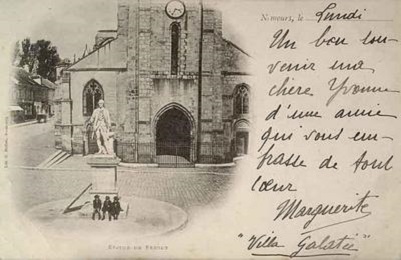 Nemours, le Lundi
Un bon sou-
venir ma
chère Yvonne
d'une amie
qui vous em-
brasse de tout
cœur
Marguerite
"Villa Galatée"